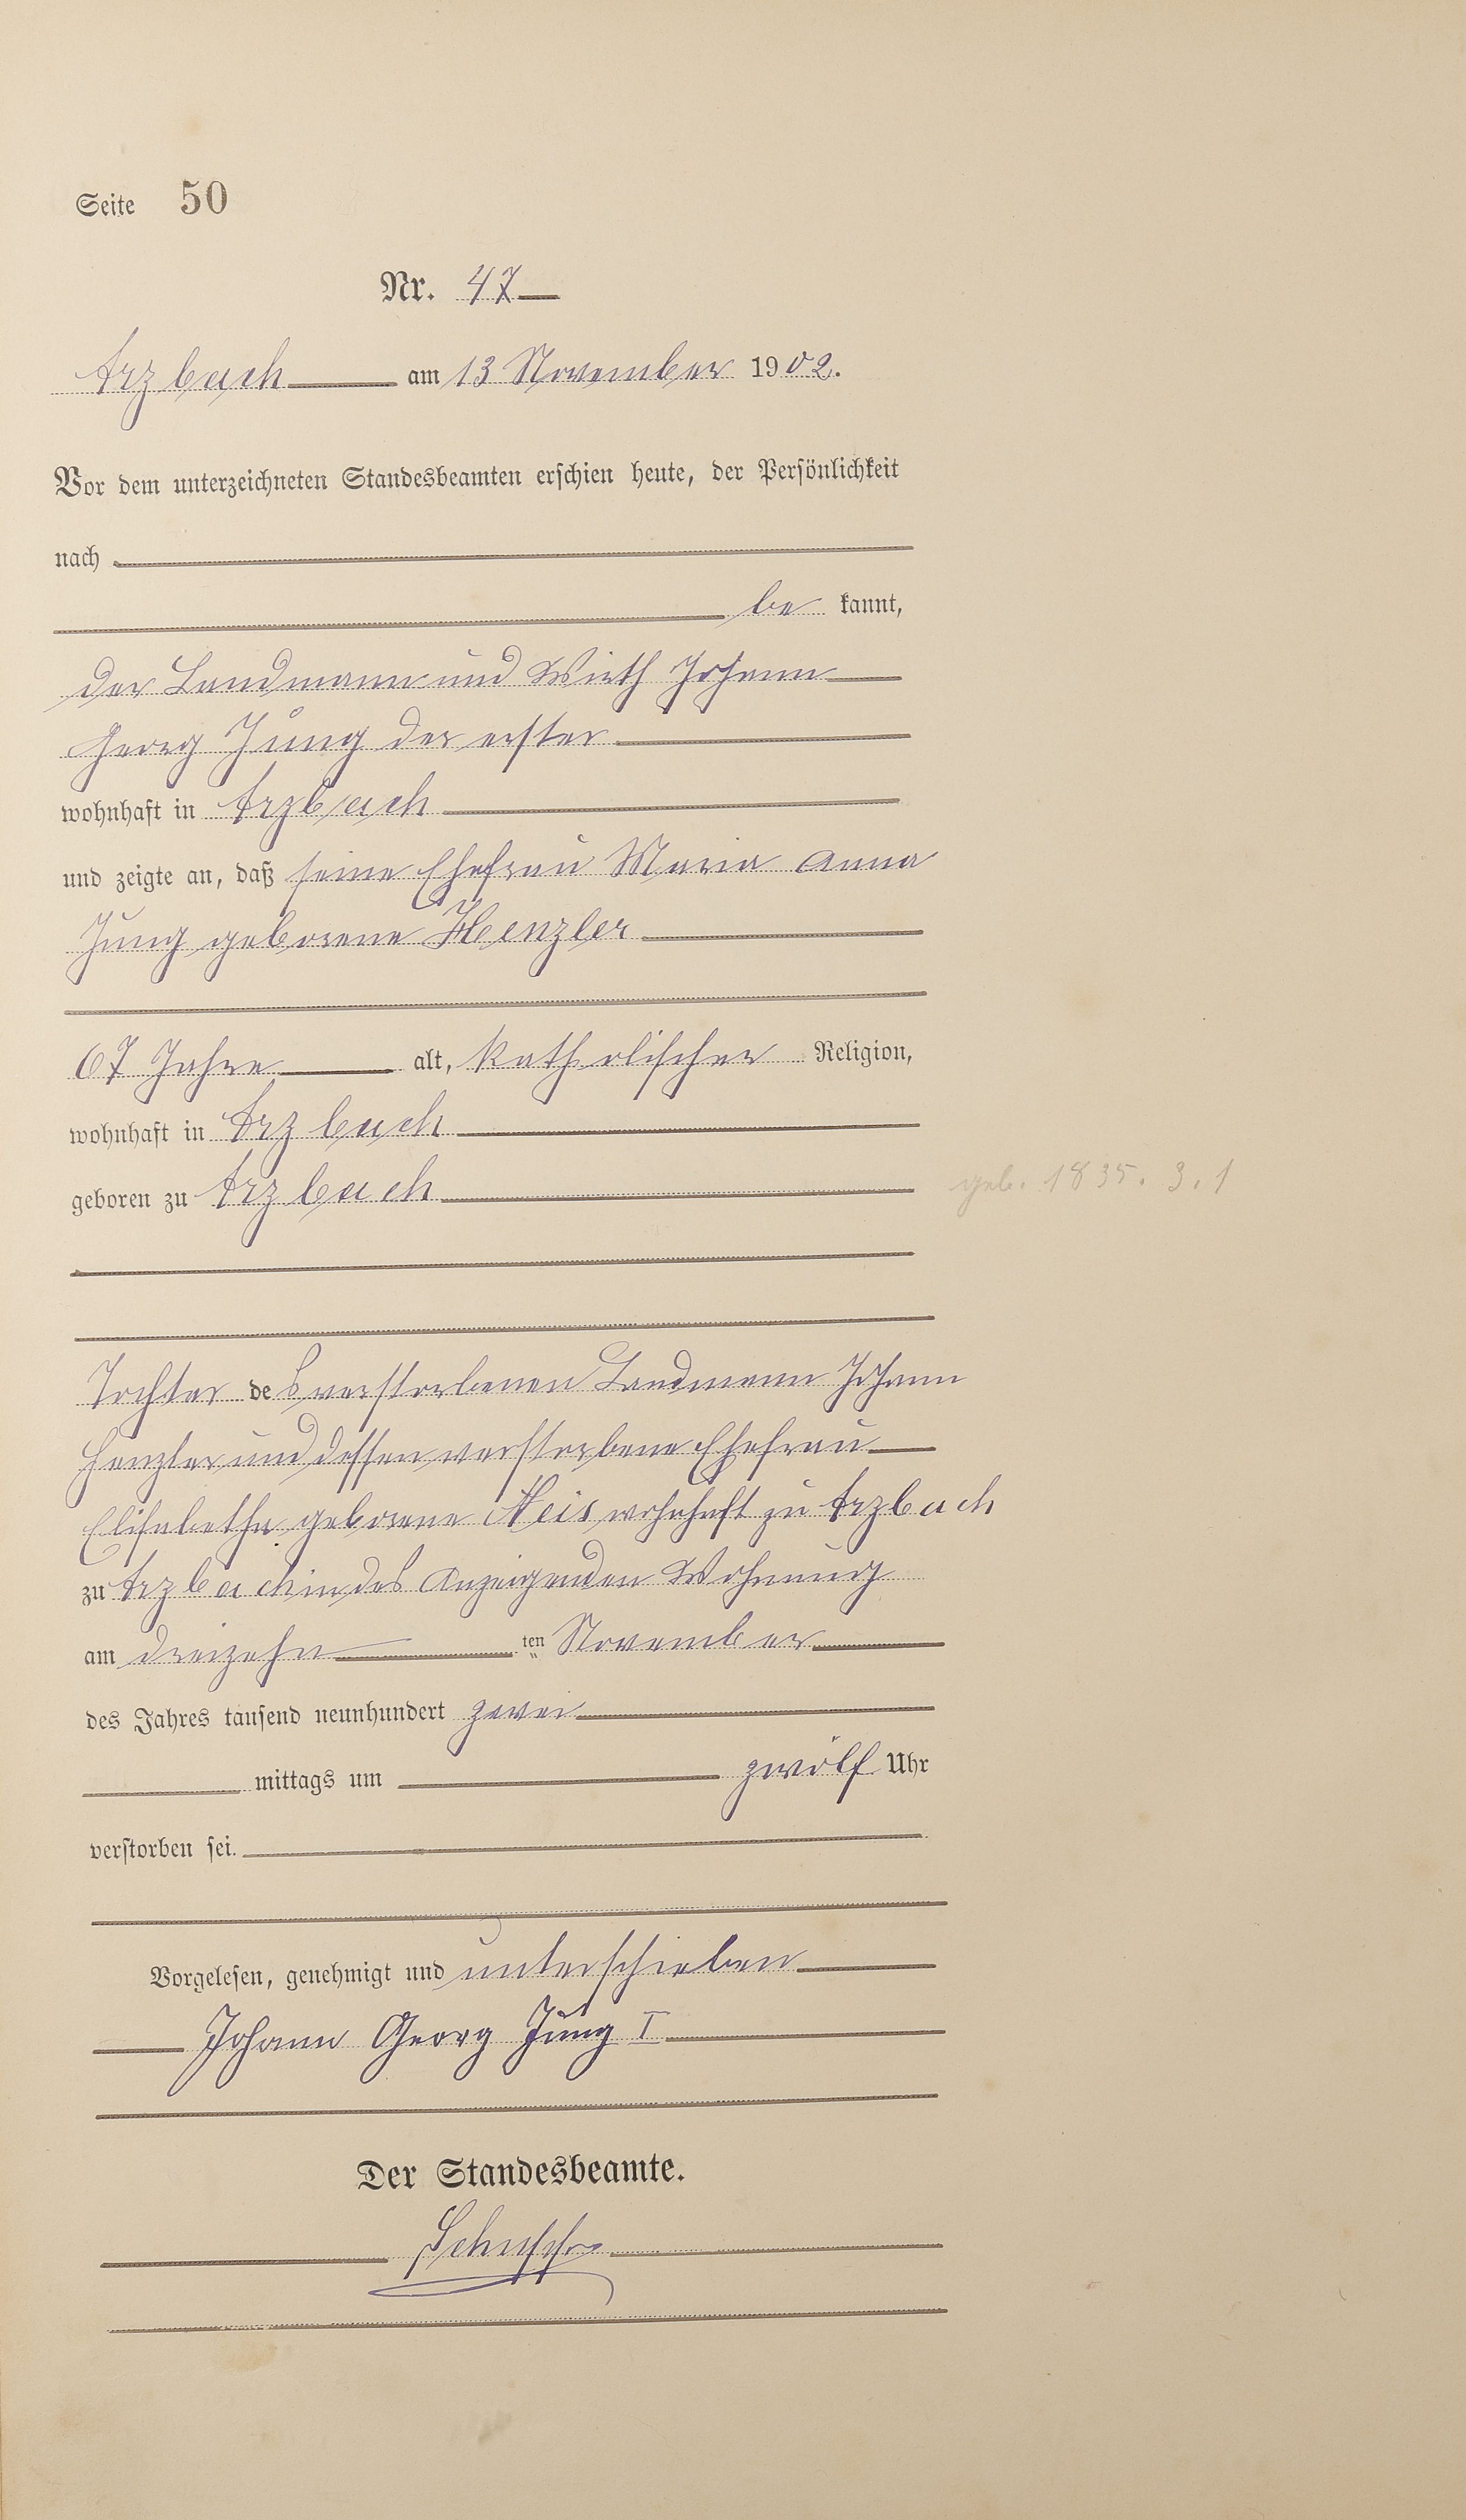 Seite 50
Nr. 47
Arzbach am 13 November 1902.
Vor dem unterzeichneten Standesbeamten erschien heute, der Persönlichkeit
nach
be kannt,
der Landmann und Wirth Johann
Georg Jung der erster
wohnhaft in Arzbach
und zeigte an, daß seine Ehefrau Maria Anna
Jung geborene Henzler
67 Jahre alt, katholischer Religion,
wohnhaft in Arzbach
geboren zu Arzbach
geb. 1835. 3. 1
Tochter des verstorbenen Landmann Johann
Henzler und dessen verstorbene Ehefrau
Elisabetha geborene Neis wohnhaft zu Arzbach
zu Arzbach in des Anzeigenden Wohnung
am dreizehn ten November
des Jahres tausend neunhundert zwei
mittags um zwölf Uhr
verstorben sei.
Vorgelesen, genehmigt und unterschieben
Johann Georg Jung I
Der Standesbeamte.